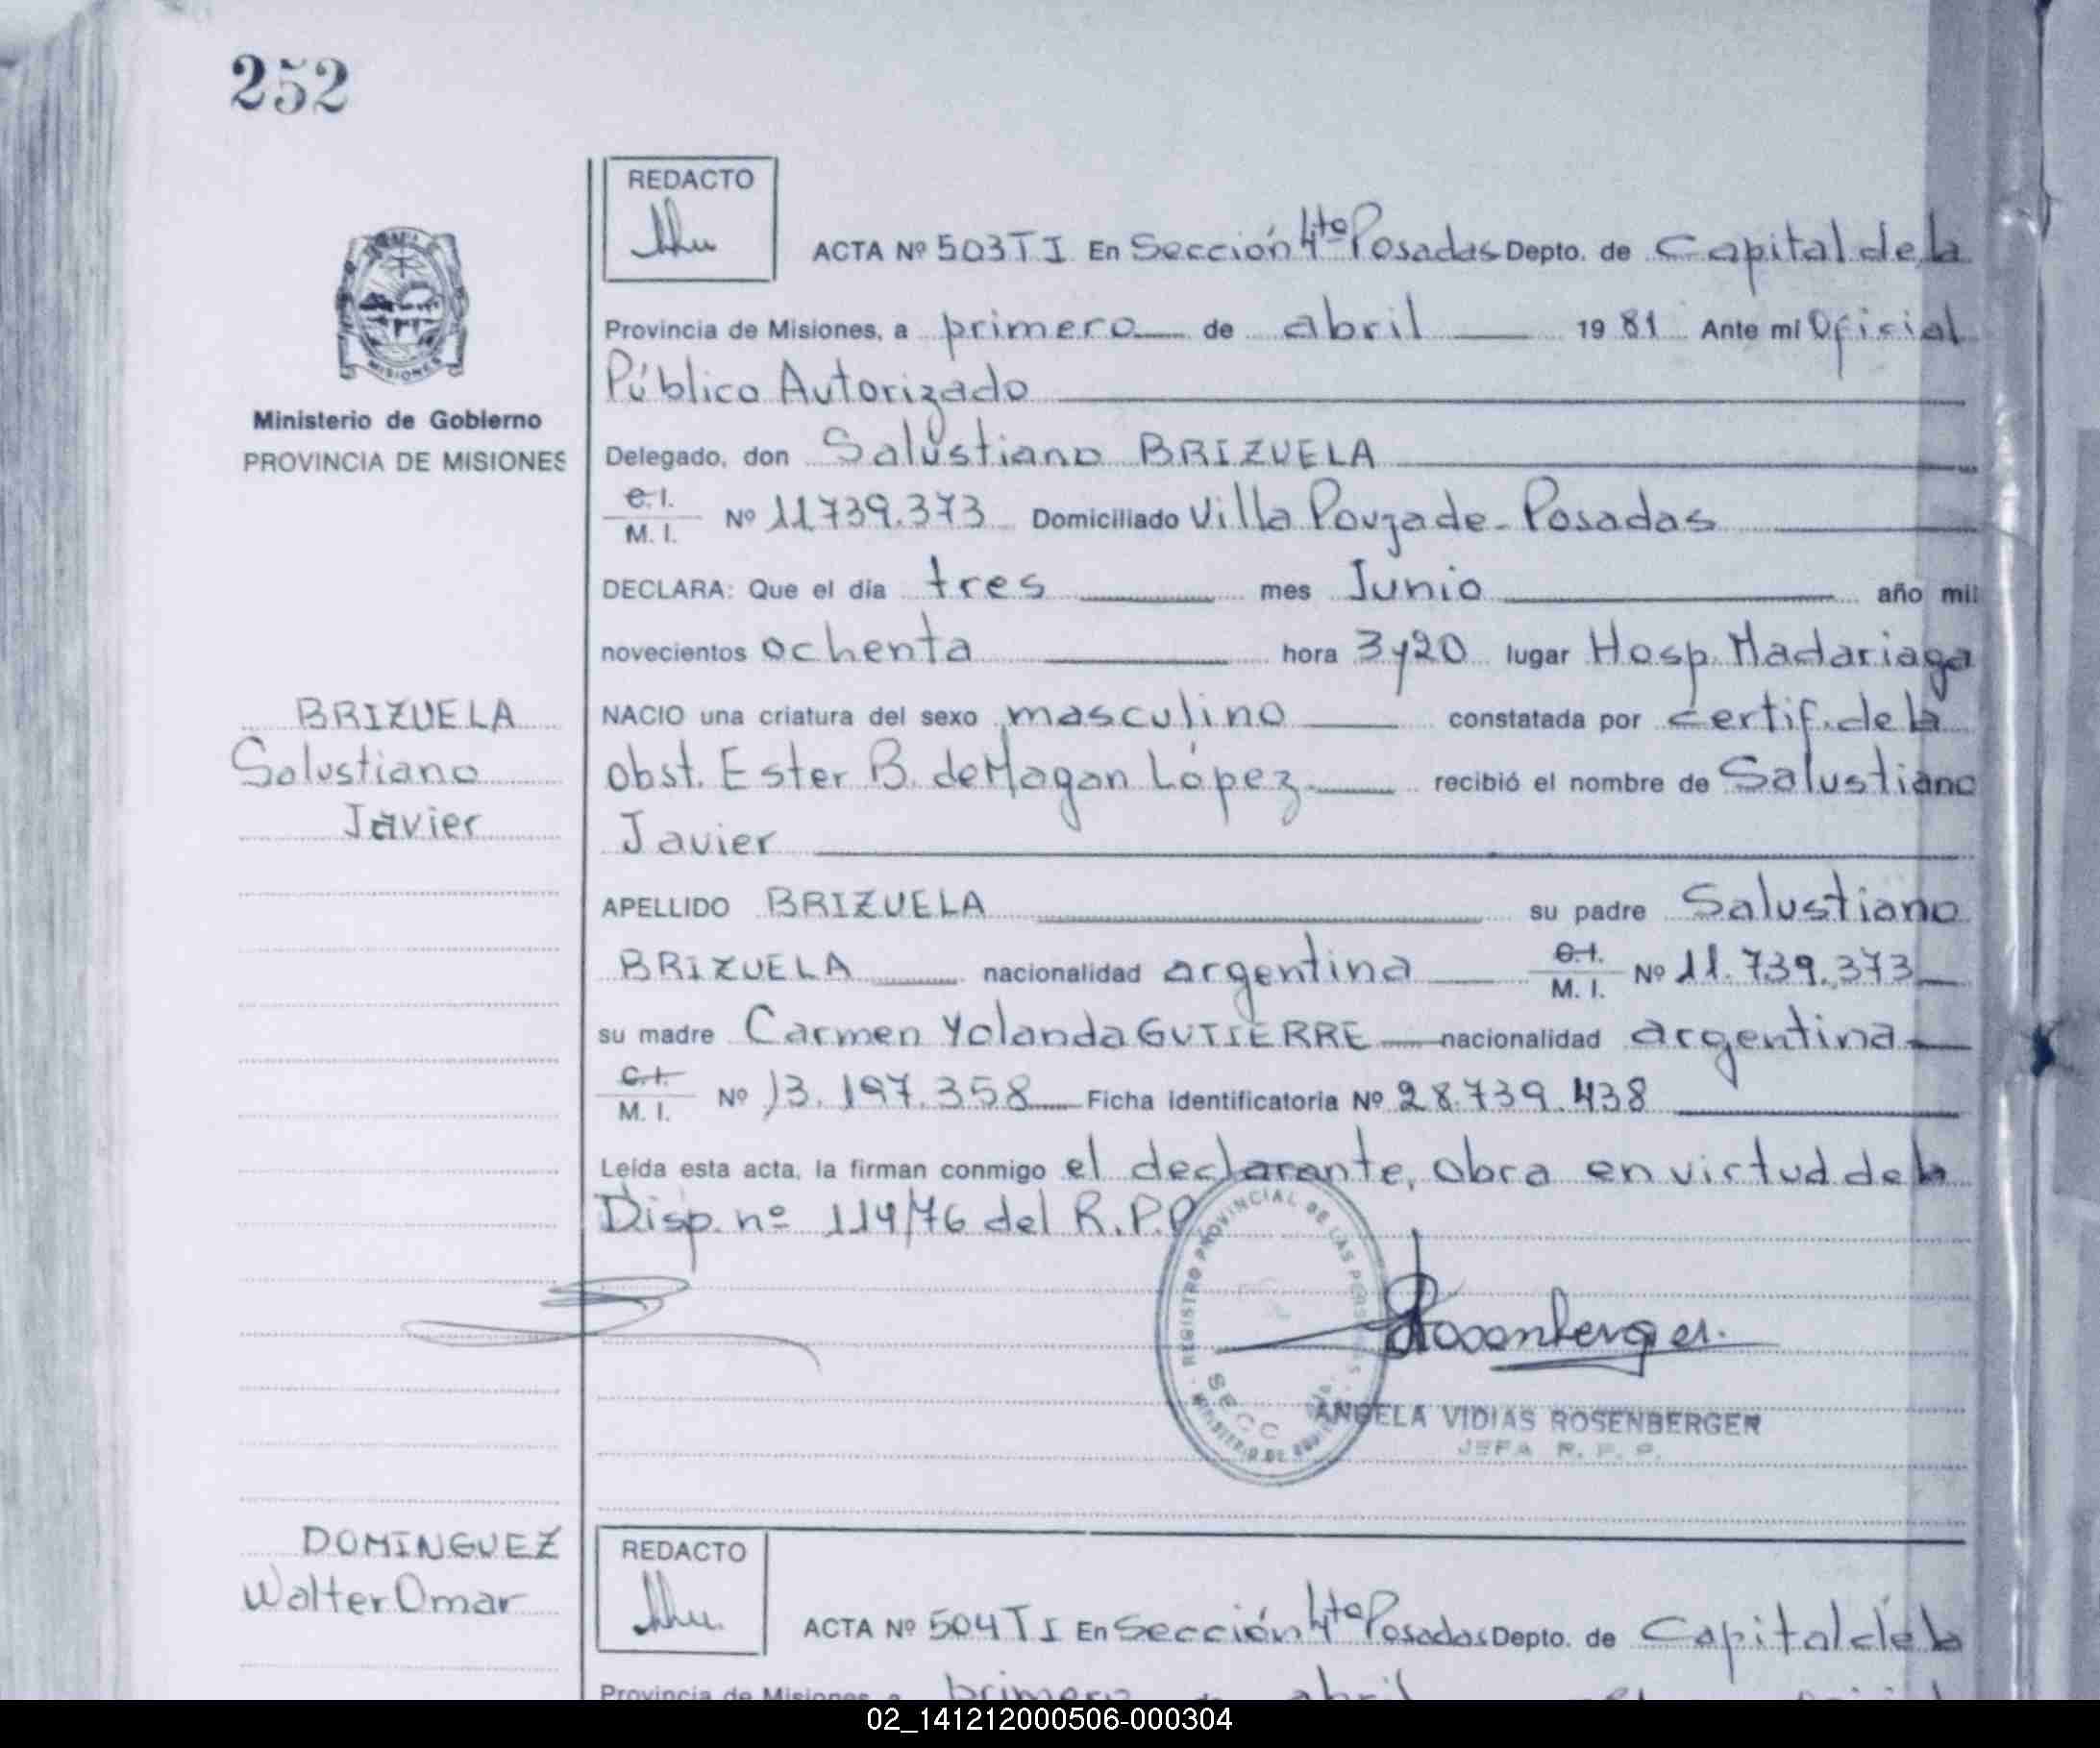 252
REDACTO
ACTA Nº 503 T I En Sección 4ta Posadas Depto. de Capital de la
Provincia de Misiones, a primero de abril 1981 Ante mi Oficial
Público Autorizado
Ministerio de Gobierno
PROVINCIA DE MISIONES
Delegado, don Salustiano BRIZUELA
C.I.
M. I. Nº 11739.373 Domiciliado Villa Poujade - Posadas
DECLARA: Que el día tres mes Junio año mil
novecientos ochenta hora 3y20 lugar Hosp. Madariaga
BRIZUELA
Salustiano
Javier
NACIO una criatura del sexo masculino constatada por certif. de la
obst. Ester B. de Magan López recibió el nombre de Salustiano
Javier
APELLIDO BRIZUELA su padre Salustiano
BRIZUELA nacionalidad argentina C.I. M. I. Nº 11.739.373
su madre Carmen Yolanda GUTIERRE nacionalidad argentina
C.I.
M. I. Nº 13.197.358 Ficha identificatoria Nº 28.739.438
Leída esta acta, la firman conmigo el declarante, obra en virtud de la
Disp. nº 114/76 del R.P.P
REGISTRO PROVINCIAL DE LAS PERSONAS
SECC
MINISTERIO DE
Rosenberger.
ANGELA VIDIAS ROSENBERGER
JEFA R. P. P.
DOMINGUEZ
Walter Omar
REDACTO
ACTA Nº 504 T I En Sección 4ta Posadas Depto. de Capital de la
Provincia de Misiones, a primero de abril
02_141212000506-000304